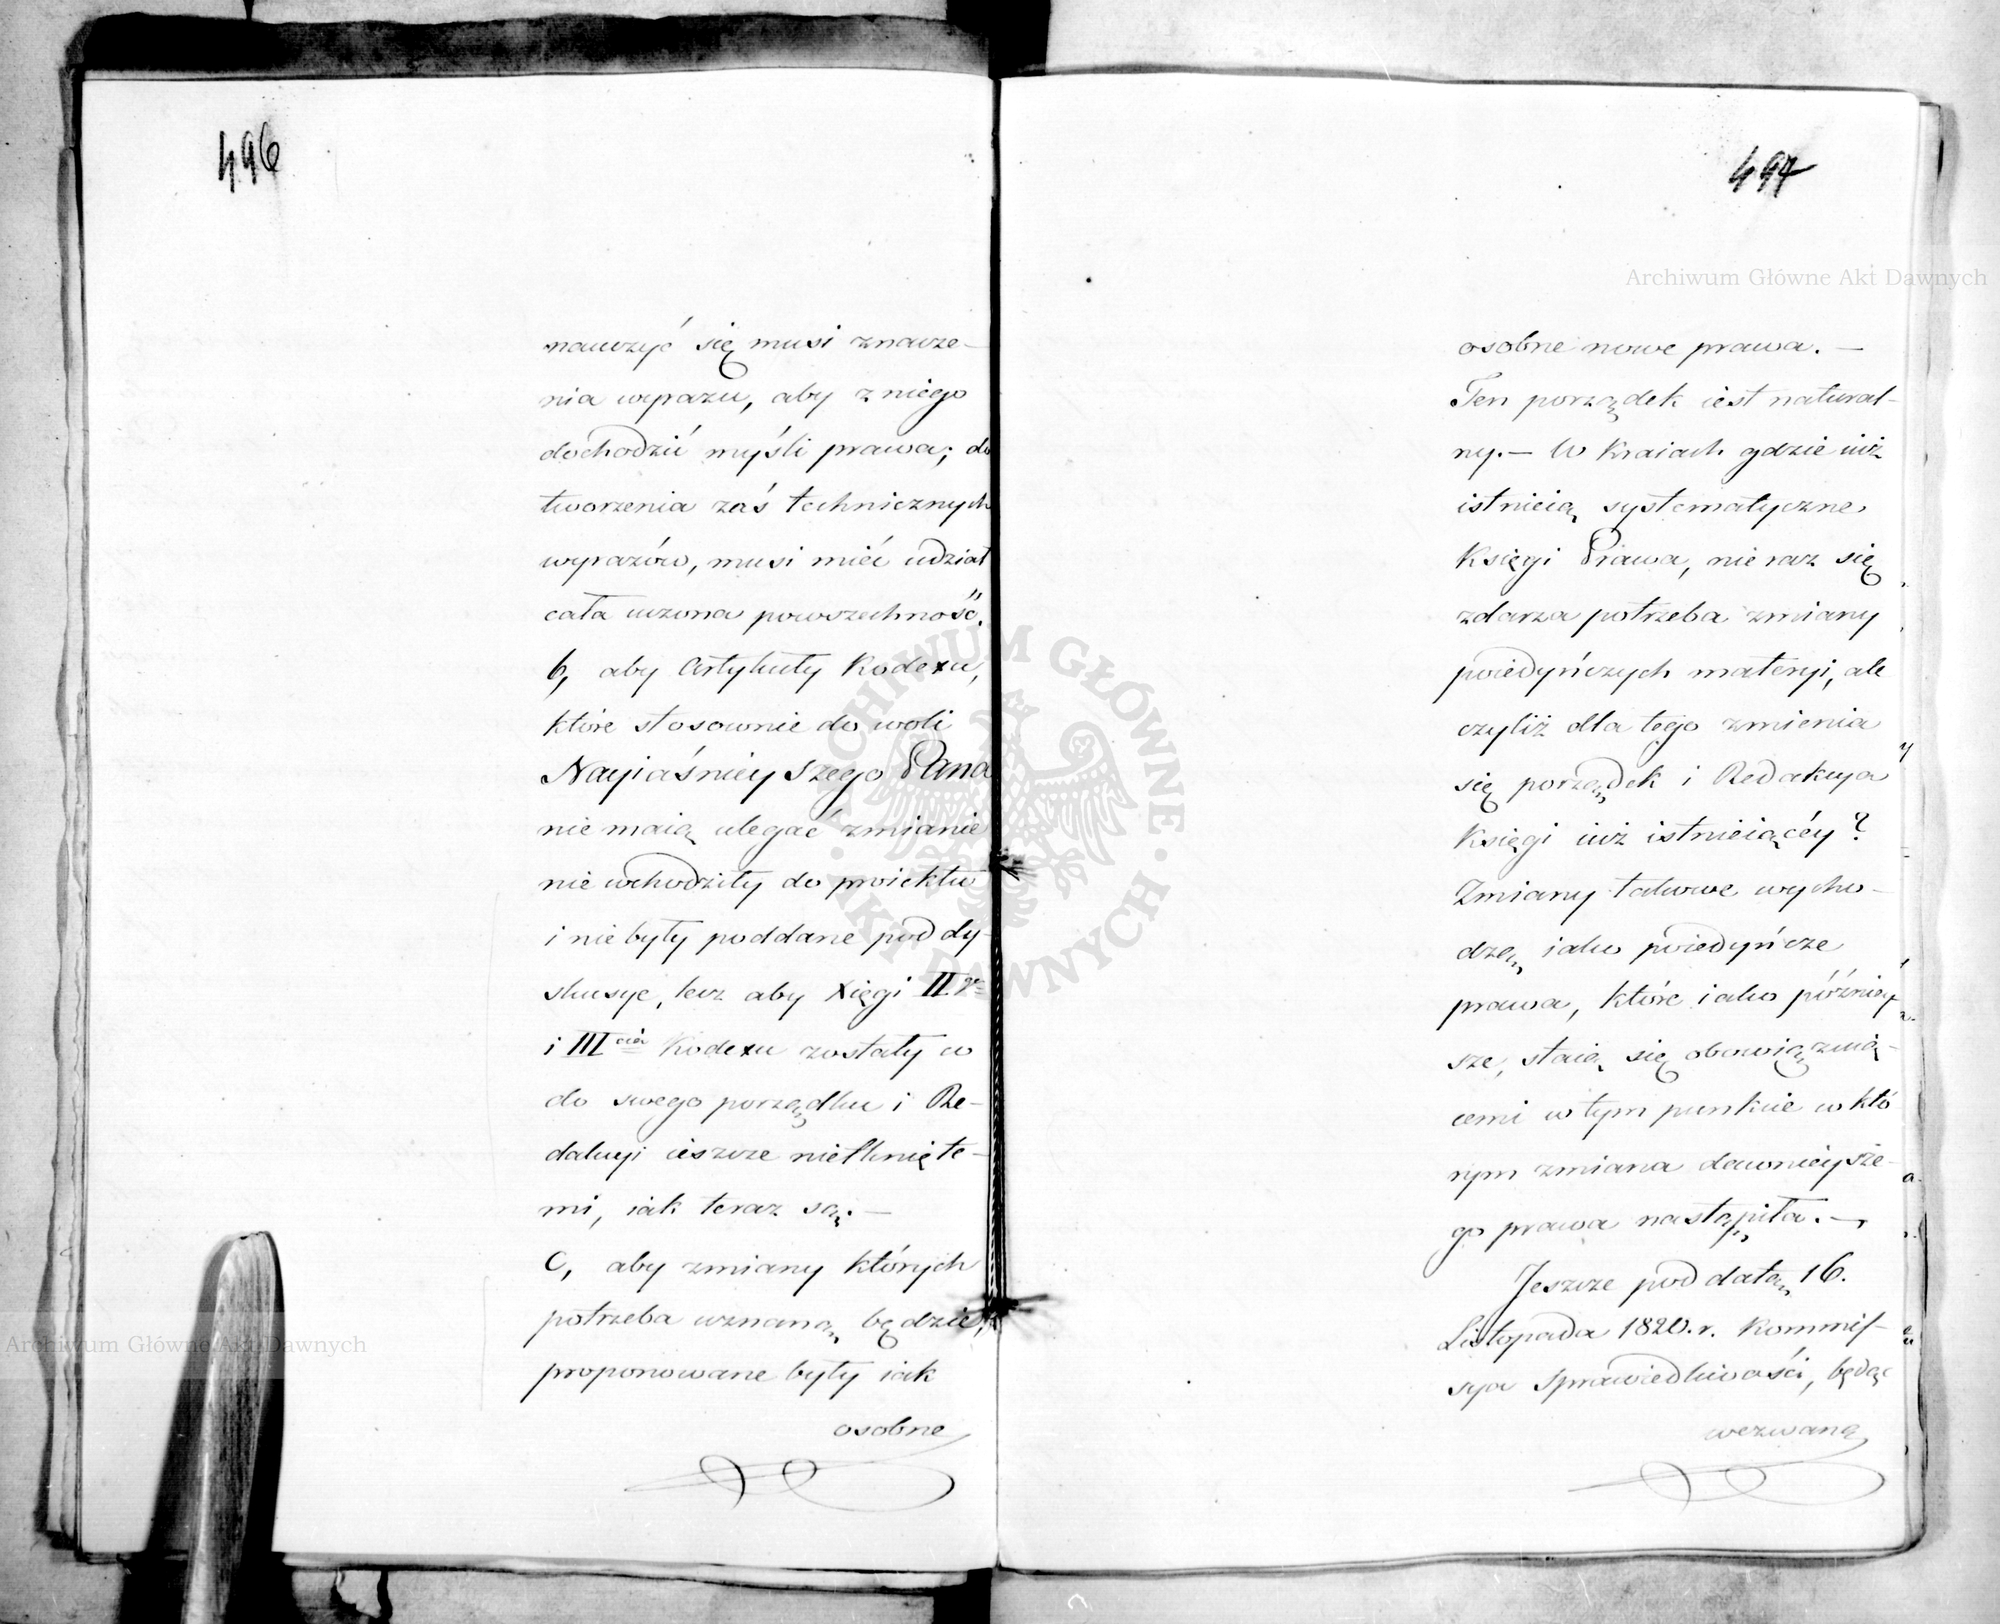 496
nauczyć się musi znacze-
nia wyrazu, aby z niego
dochodzić myśli prawa; do
tworzenia zaś technicznych
wyrazów, musi mieć udział
cała uczona powszechność.
b, aby Artykuły Kodexu,
które stosownie do woli
Nayiaśnieyszego Pana
nie maią ulegać zmianie
nie wchodziły do proiektu
i nie były poddane pod dy-
skusye, lecz aby Xięgi II
i III Kodexu zostały co
do swego porządku i Re-
dakcyi ieszcze nietknięte-
mi, iak teraz są. —
C, aby zmiany których
potrzeba uznaną będzie,
proponowane były iak
osobne
497
osobne nowe prawa. —
Ten porządek iest natural-
ny. — W Kraiach gdzie iuż
istnieią systematyczne
Księgi Prawa, nie raz się
zdarza potrzeba zmiany
poiedyńczych materyi, ale
czyliż dla tego zmienia
się porządek i Redakcya
Księgi iuż istnieiącéy?
Zmiany takowe wycho-
dzą iako poiedyńcze
prawa, które iako późniey-
sze, staią się obowiązuią-
cemi w tym punkcie w któ
rym zmiana dawnieysze-
go prawa nastąpiła. —
Jeszcze pod datą 16.
Listopada 1820. r. Kommis-
sya Sprawiedliwości, będąc
wezwaną
Archiwum Główne Akt Dawnych
Archiwum Główne Akt Dawnych
ARCHIWUM GŁÓWNE AKT DAWNYCH